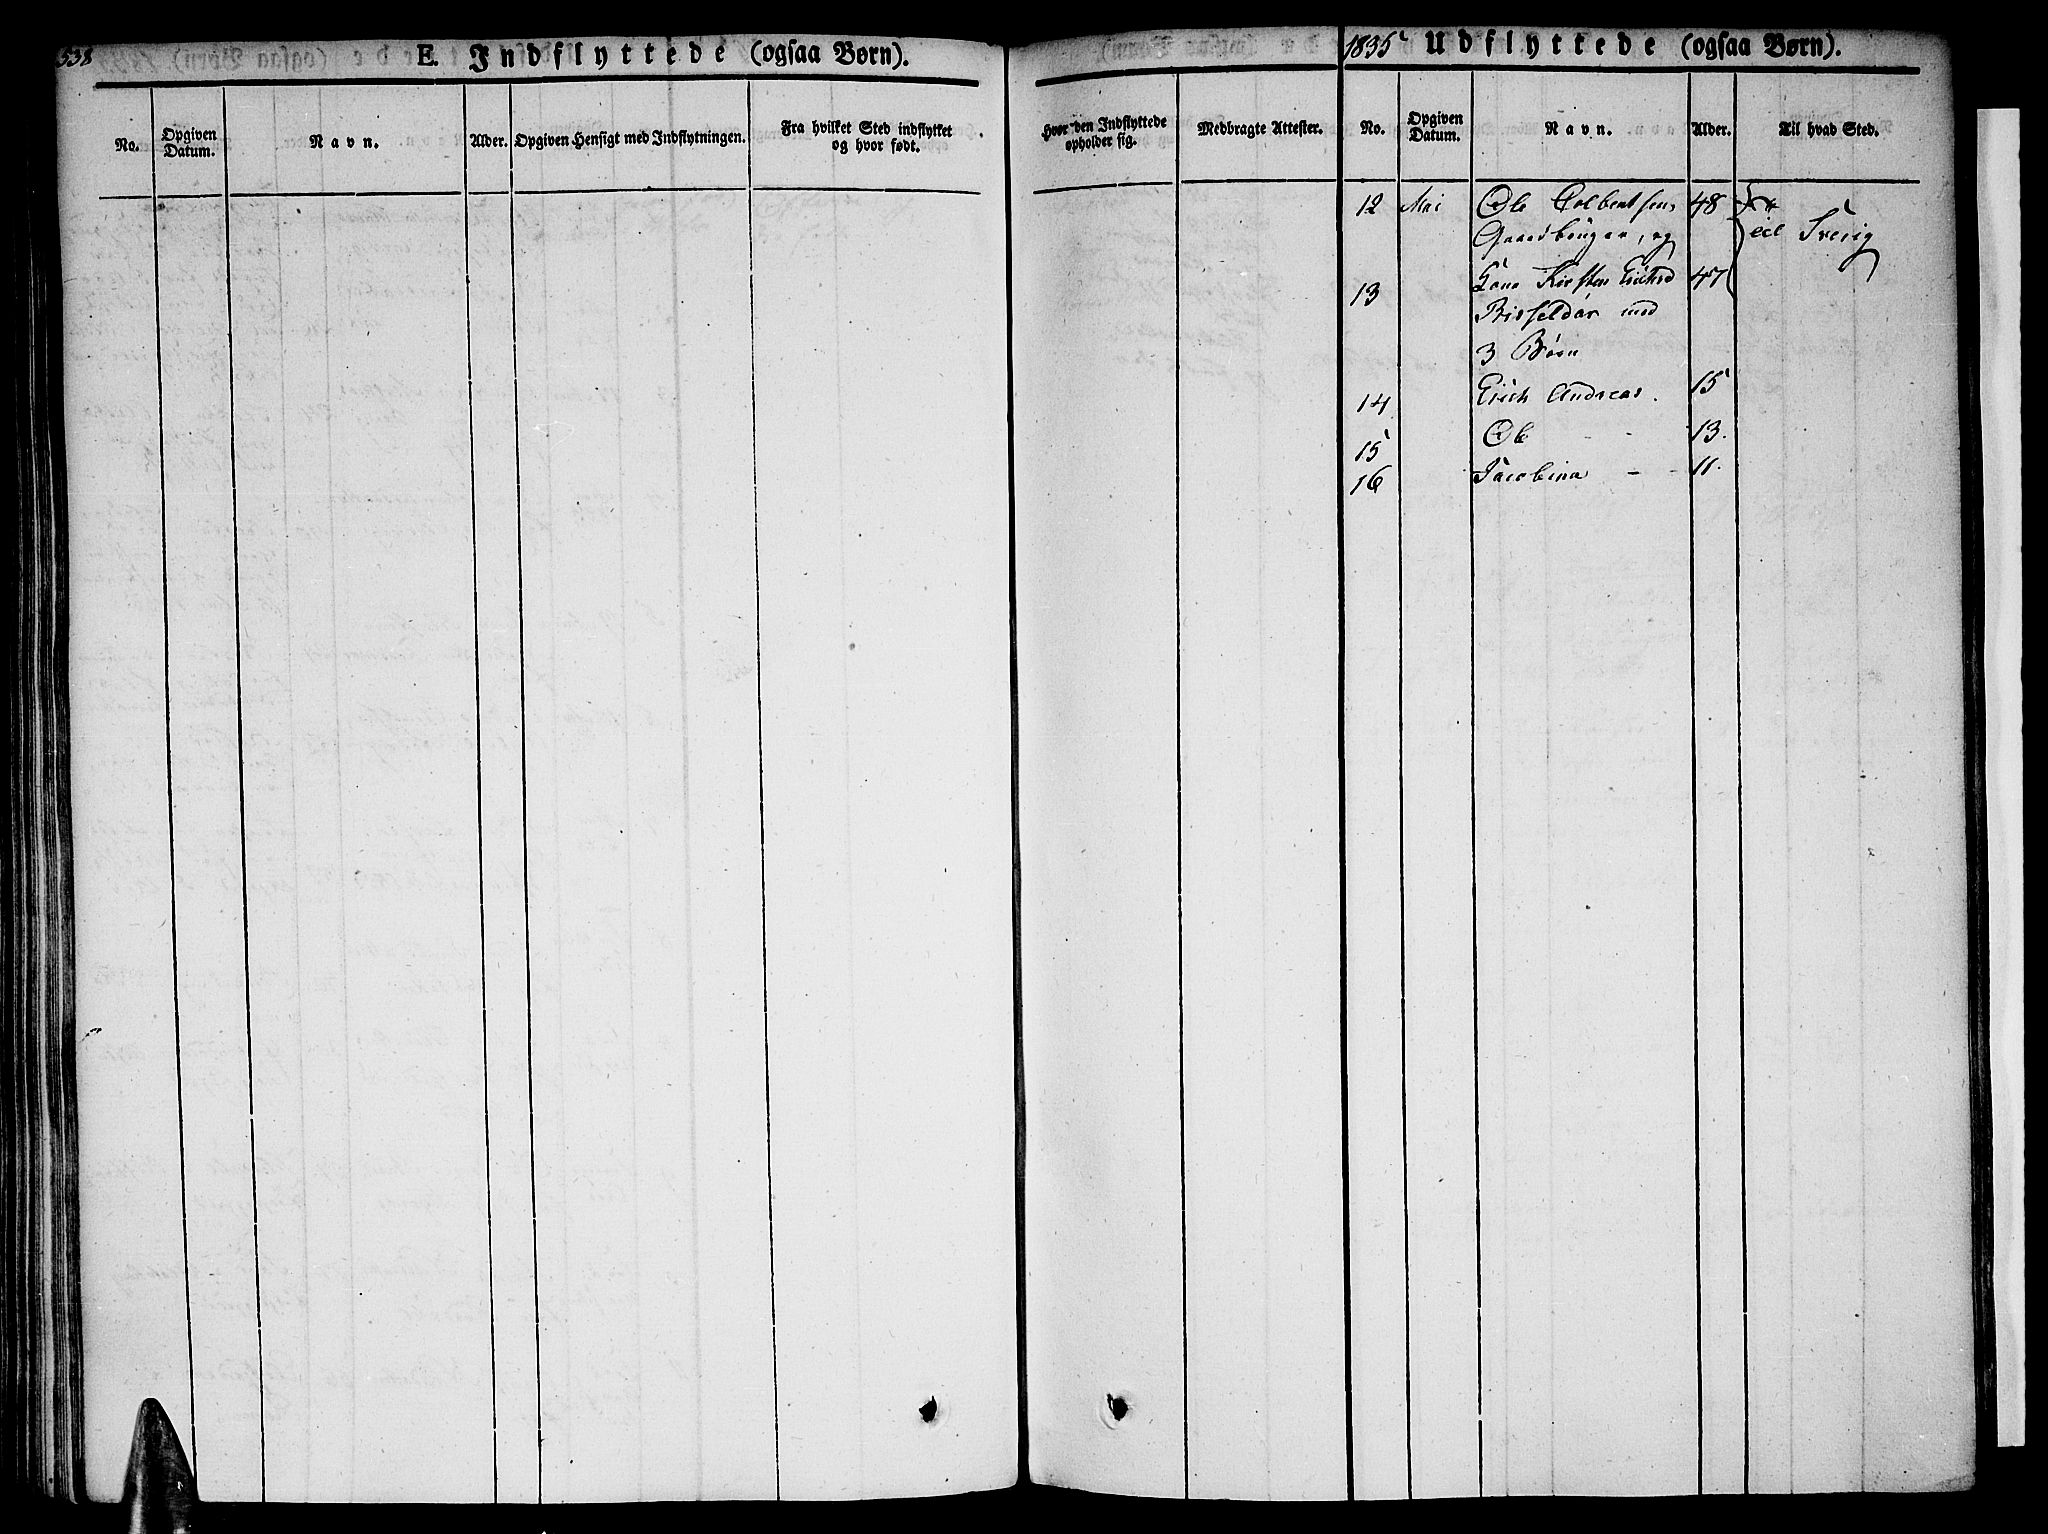 538
E. Indflyttede (ogsaa Børn).
No.
Opgiven
Datum.
Navn.
Alder.
Opgiven Hensigt med Indflytningen.
Fra hvilket Sted indflyttet
og hvor født.
Hvor den Indflyttede
opholder sig.
Medbragte Attester.
1835 Udflyttede (ogsaa Børn).
No.
Opgiven
Datum.
Navn.
Alder.
Til hvad Sted.
12 Mai Ole Colbentsen 48
Gaardbruger, og
til Sverig
13 Kone Kirsten Erichsd 47
med
3 Børn
14 Erich Andreas. 15
15 Ole - - 13.
16 Jacobina - - 11.